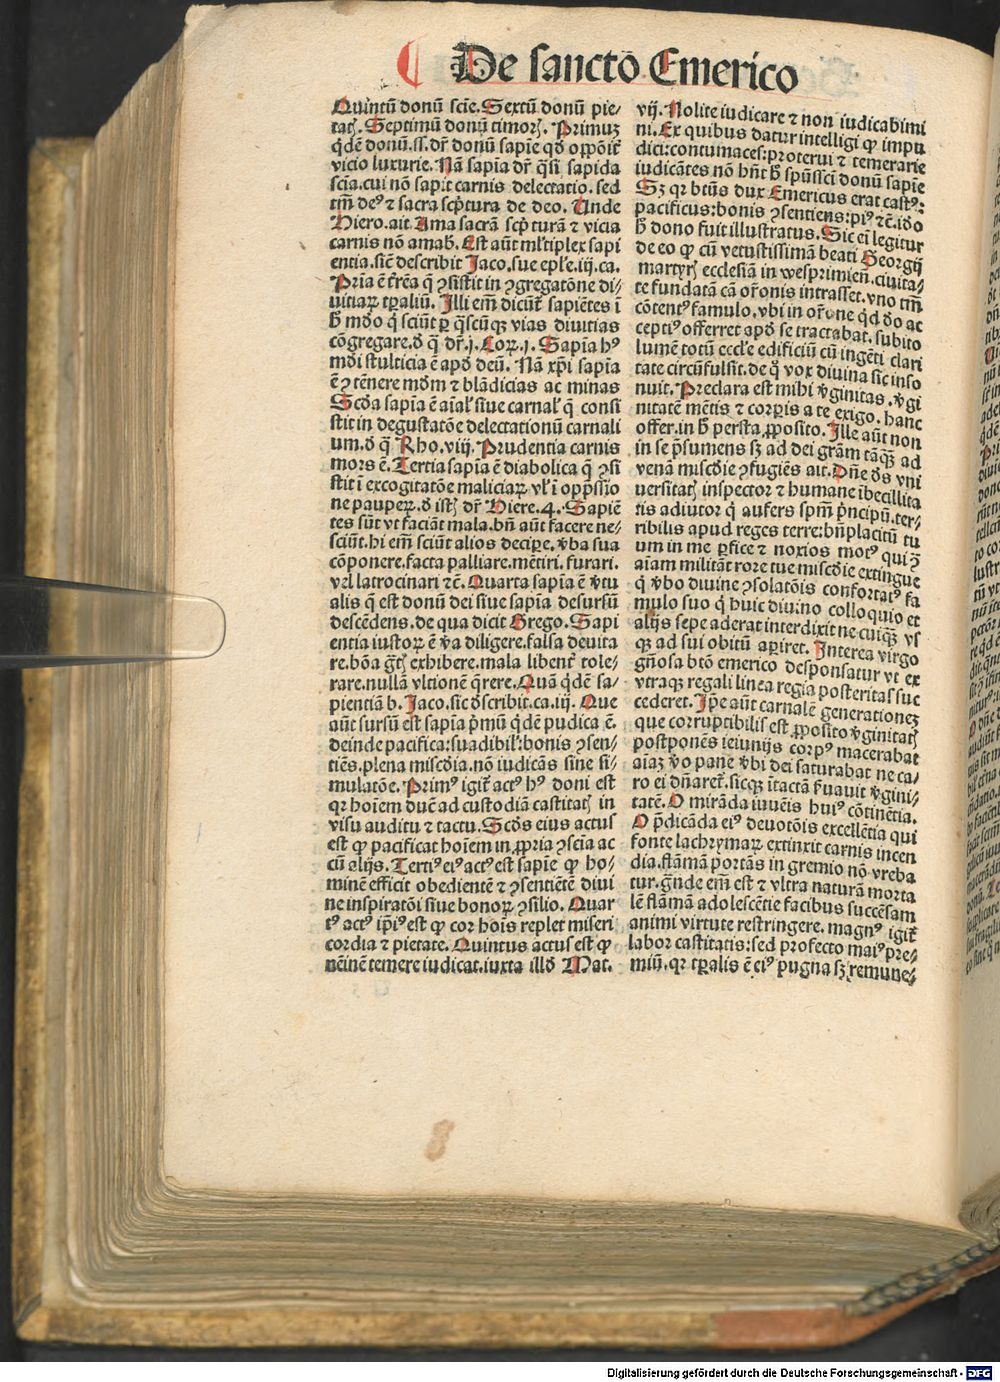 De sanctō Emerico
Quintū donū scie͂. Sextū donū pie-
tatꝭ. Septimū donū timorꝭ. Primuꝫ
q̇dē donū.ſſ. dr̄ donū sapīe qđ oppōit̄
vicio luxurie. Nā sapīa dr̄ q̄si sapida
scīa. cui nō sapit carnis delectatio. sed
tm̄ deꝰ ⁊ sacra scp̄tura de deo. Unde
Hiero. ait. Ama sacrā scp̄turā ⁊ vicia
carnis nō amab̄. Est aūt ml̄tiplex sapi
entia. sic̄ describit Jaco. sue epl̄e. iij. ca.
Pria ē t̄rēa q̄ ꝯsistit in ꝯgregatōne di-
uitiaꝝ tꝑaliū. Illi em̄ dicūt̄ sapiētes ī
ħ mōdo q̄ sciūt ꝑ q̄scūqꝫ vias diuitias
cōgregare. đ q̄ dr̄. j. Coꝝ. j. Sapīa hꝰ
mōi stulticia ē apđ deū. Nā xp̄i sapīa
ē ꝯtēnere mōm ⁊ blādicias ac minas
Scđa sapīa ē aīal̄ siue carnal̄ q̄ consi
stit in degustatōe delectationū carnali
um. đ q̄ Rho. viij. Prudentia carnis
mors ē. Tertia sapīa ē diabolica q̄ ꝯsi
stit ī excogitatōe maliciaꝝ vl̄ ī opp̄ssio
ne pauperꝝ. đ istꝭ dr̄ Hiere. 4. Sapiē
tes sūt vt faciāt mala. bn̄ aūt facere ne-
sciūt. hi em̄ sciūt alios deciꝑe. v̄ba sua
cōponere. facta palliare. mētiri. furari.
vel latrocinari ⁊c̄. Quarta sapīa ē v̄tu
alis q̄ est donū dei siue sapīa desursū
descēdens. de qua dicit Grego. Sapi
entia iustoꝝ ē v̄a diligere. falsa deuita
re. bōa gͣtꝭ exhibere. mala libent̄ tole-
rare. nullā vltionē q̄rere. Quā q̇dē sa-
pientiā b. Jaco. sic đscribit. ca. iij. Que
aūt sursū est sapīa pͥmū q̇dē pudica ē.
deinde pacifica: suadibil̄: bonis ꝯsen-
tiēs. plena miscđia. nō iudicās sine si-
mulatōe. Primꝰ igit̄ actꝰ hꝰ doni est
qꝛ hoīem duc̄ ad custodiā castitatꝭ in
visu auditu ⁊ tactu. Scđs eius actus
est ꝙ pacificat hoīem in ꝓpria ꝯscīa ac
cū alijs. Tertiꝰ eiꝰ actꝰ est sapīe ꝙ ho-
minē efficit obedientē ⁊ ꝯsentiētē diui
ne inspiratōi siue bonoꝝ ꝯsilio. Quar
tꝰ actꝰ ip̄iꝰ est ꝙ cor hoīs replet miseri
cordia ⁊ pietate. Quintus actus est ꝙ
nēinē temere iudicat. iuxta illđ Mat.
vij. Nolite iudicare ⁊ non iudicabimi
ni. Ex quibus datur intelligi ꝙ impu
dici: contumaces: proterui ⁊ temerarie
iudicātes nō hn̄t ħ spūsscī donū sapīe
Sꝫ qꝛ btūs dux Emericus erat castꝰ:
pacificus: bonis ꝯsentiens: piꝰ ⁊c̄. iđo
ħ dono fuit illustratus. Sic ei legitur
de eo ꝙ cū vetustissimā beati Georgij
martyrꝭ ecclesiā in wesprimien̄. ciuita-
te fundatā cā orōnis intrasset. vno tm̄
cōtentꝰ famulo. vbi in orōne q̇d đo ac
ceptiꝰ offerret apđ se tractabat. subito
lumē totū eccl̄e edificiū cū ingēti clari
tate circūfulsit. de qͦ vox diuina sic inso
nuit. Preclara est mihi v̄ginitas. v̄gi
nitatē mētis ⁊ corꝑis a te exigo. hanc
offer. in ħ persta ꝓposito. Ille aūt non
in se p̄sumens sꝫ ad dei grām tāqꝫ ad
venā miscđie ꝯfugiēs ait. Dn̄e đs vni
uersitatꝭ inspector ⁊ humane ībecillita
tis adiutor q̇ aufers spm̄ pͥncipū. ter-
ribilis apud reges terre: bn̄placitū tu
um in me ꝑfice ⁊ noxios motꝰ qui ꝯ
aīam militāt rore tue miscđie extingue
q̇ v̄bo diuine ꝯsolatōis confortatꝰ fa
mulo suo q̇ huic diuino colloquio et
alijs sepe aderat interdixit ne cuiqꝫ vs
qꝫ ad sui obitū aꝑiret. Interea virgo
gn̄osa btō emerico desponsatur vt ex
vtraqꝫ regali linea regia posteritas suc
cederet. Ip̄e aūt carnalē generationeꝫ
que corruptibilis est ꝓposito v̄ginitatꝭ
postponēs ieiunijs corpꝰ macerabat
aīaꝫ v̄o pane v̄bi dei saturabat ne ca-
ro ei dn̄aret̄. sicqꝫ ītactā ẜuauit v̄gini-
tatē. O mirāda iuuēis huiꝰ cōtinētia.
O p̄dicāda eiꝰ deuotōis excellētia qui
fonte lachrymaꝝ extinxit carnis incen
dia. flāmā portās in gremio nō vreba
tur. gͣnde em̄ est ⁊ vltra naturā morta
lē flāmā adolescētie facibus succēsam
animi virtute restringere. magnꝰ igit̄
labor castitatis: sed profecto maiꝰ pre-
miū. qꝛ tꝑalis ē eiꝰ pugna sꝫ remune-
Digitalisierung gefördert durch die Deutsche Forschungsgemeinschaft - DFG